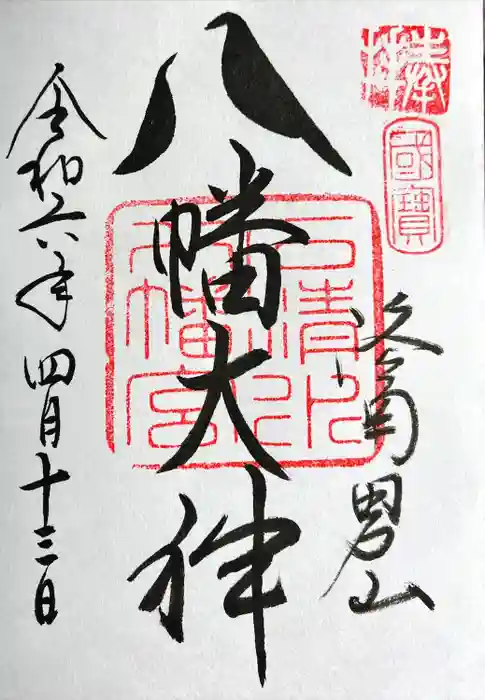 奉拝
國寶
必南男山
八幡大神
石清水八幡宮
令和六年四月十三日